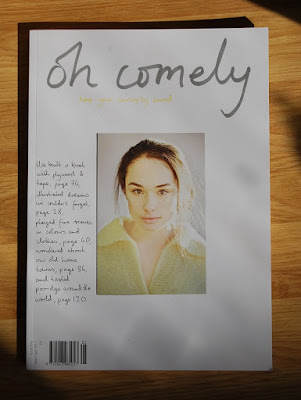 oh comely
keep your curiosity sacred
We built a book
with plywood &
tape, page 76,
illustrated dreams
we couldn't forget,
page 28,
played five scenes
in colours and
clothes, page 40,
wondered about
our old home
towns, page 86,
and tasted
porridge around the
world, page 120.